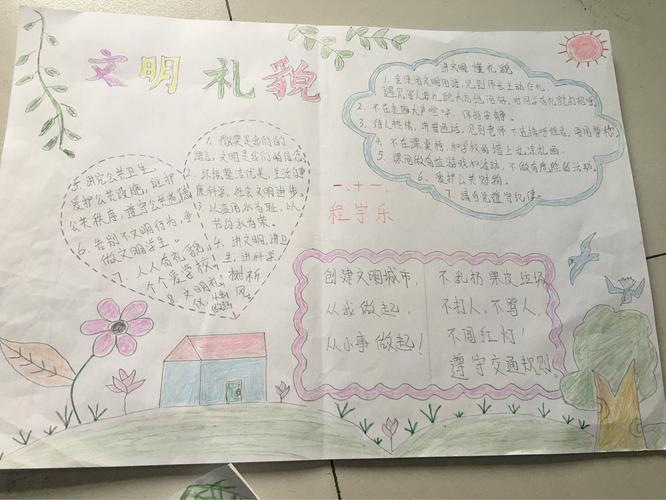 文明礼貌
1、微笑是我们的
语言，文明是我们的信念
2、环境整洁优美，生活健
康科学，社会文明进步。
3、以
书
4、讲文明，讲卫
生，讲科学，
树新
风。
5、讲究公共卫生，
爱护公共设施，维护
公共秩序，遵守公共道德
6、告别不文明行为，争
做文明学生。
7、人人有礼貌，
个个爱学校。
8、文明礼
讲文明 懂礼貌
1、会使用文明用语，见到师长主动行礼，
遇见客人有礼貌大方地问好，对同学有礼貌的招呼。
2、不在走廊大声喧哗，保持安静。
3、待人热情，讲普通话，见到老师，不直接呼姓名
4、不在课桌椅和学校的墙上乱涂乱画。
5、课间做有益游戏和活动，不做有危险的活动。
6、爱护公共财物。
7、请自觉遵守纪律
一、十一、
程宇乐
创建文明城市，
从我做起，
从小事做起！
不乱扔果皮垃圾
不打人，不骂人，
不闯红灯！
遵守交通规则。